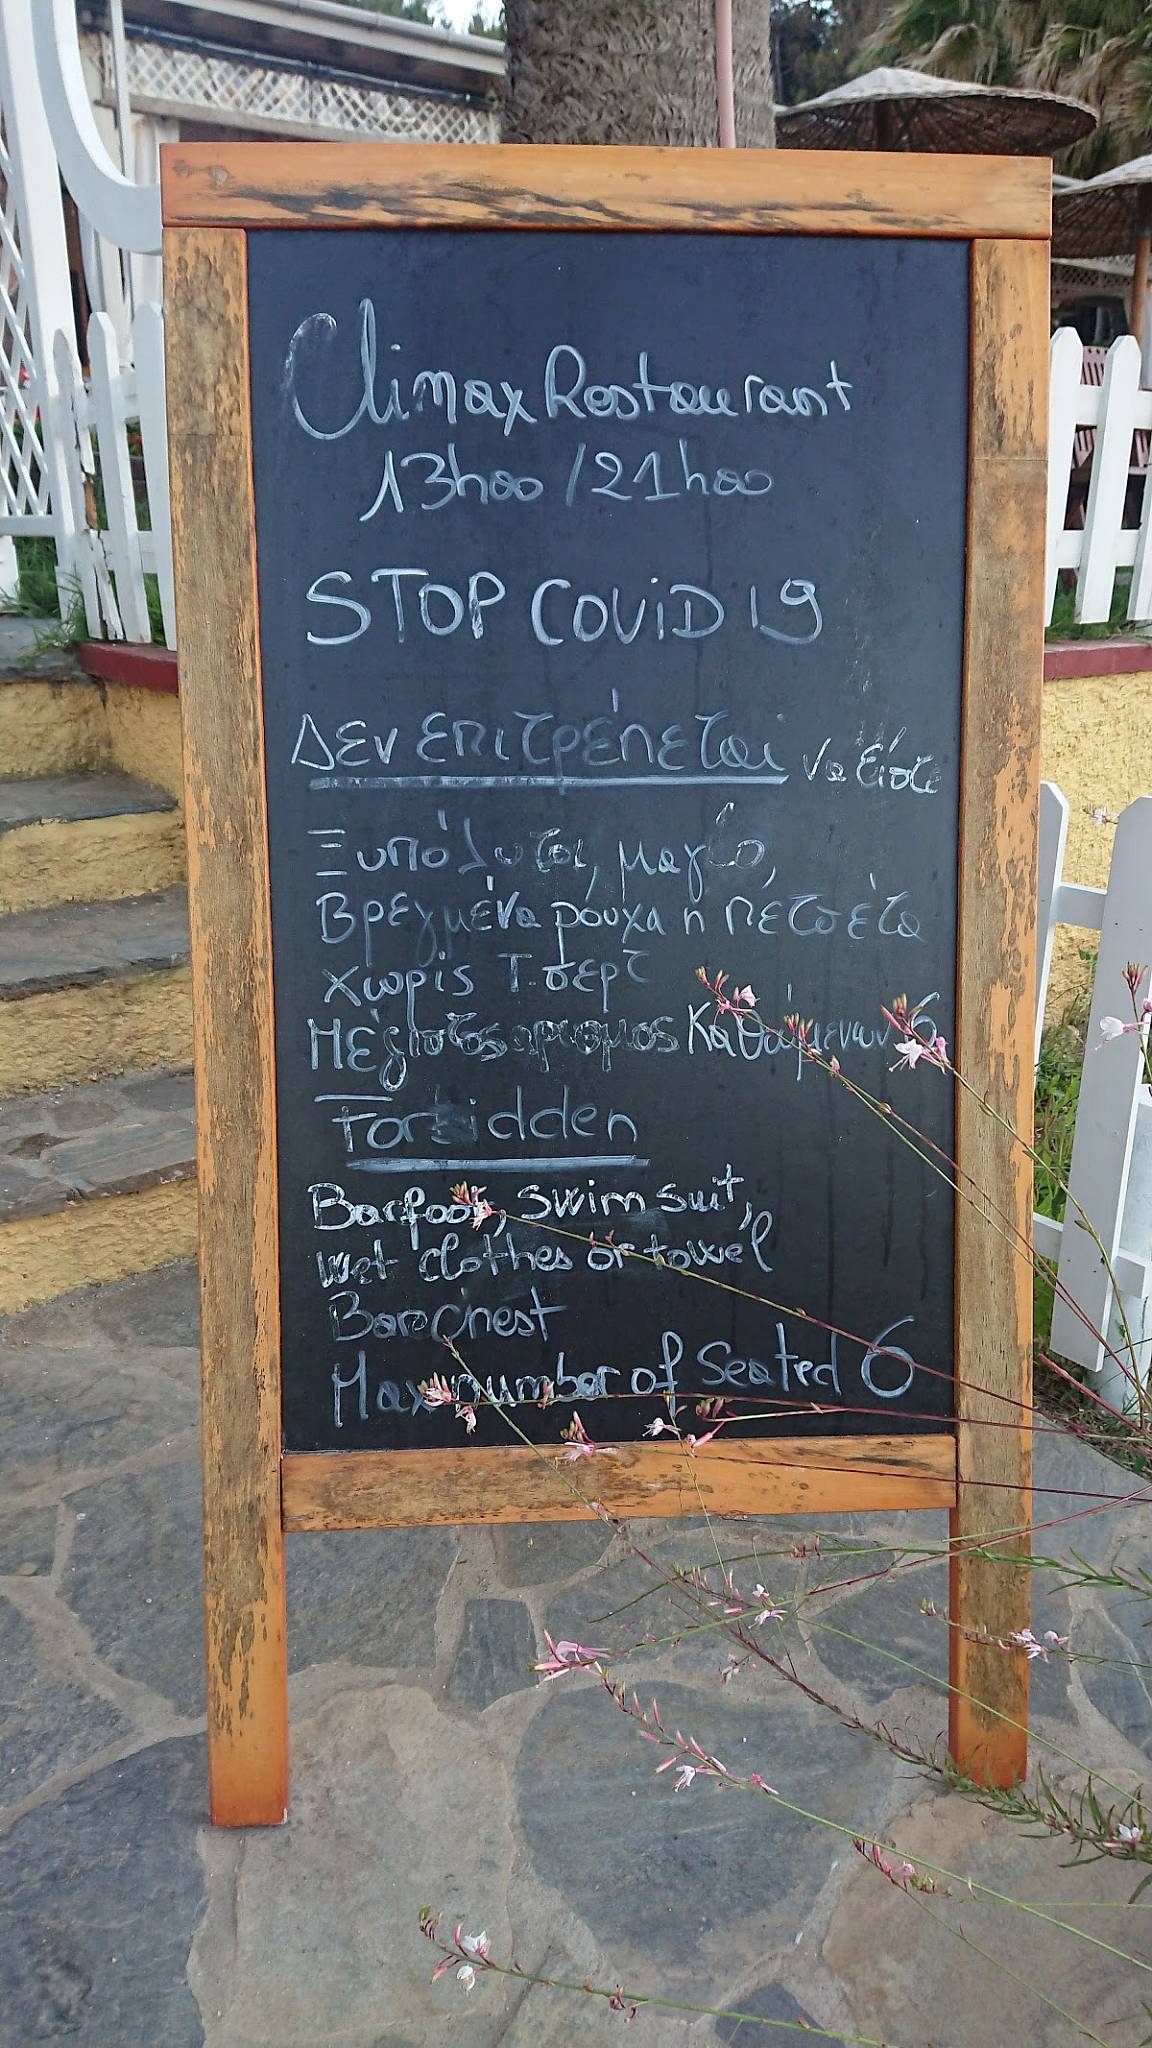 Climax Restaurant
13h00 / 21h00
STOP COViD 19
Δεν επιτρέπεται να είστε
Ξυπόλυτοι, μαγίο,
Βρεγμένα ρούχα η πετσέτα
Χωρίς Τ.σερτ
Μέγιστος αρισμος Καθώμενων 6
Forbidden
Barfoot, swim suit,
wet clothes or towel
Barchest
Max number of Seated 6